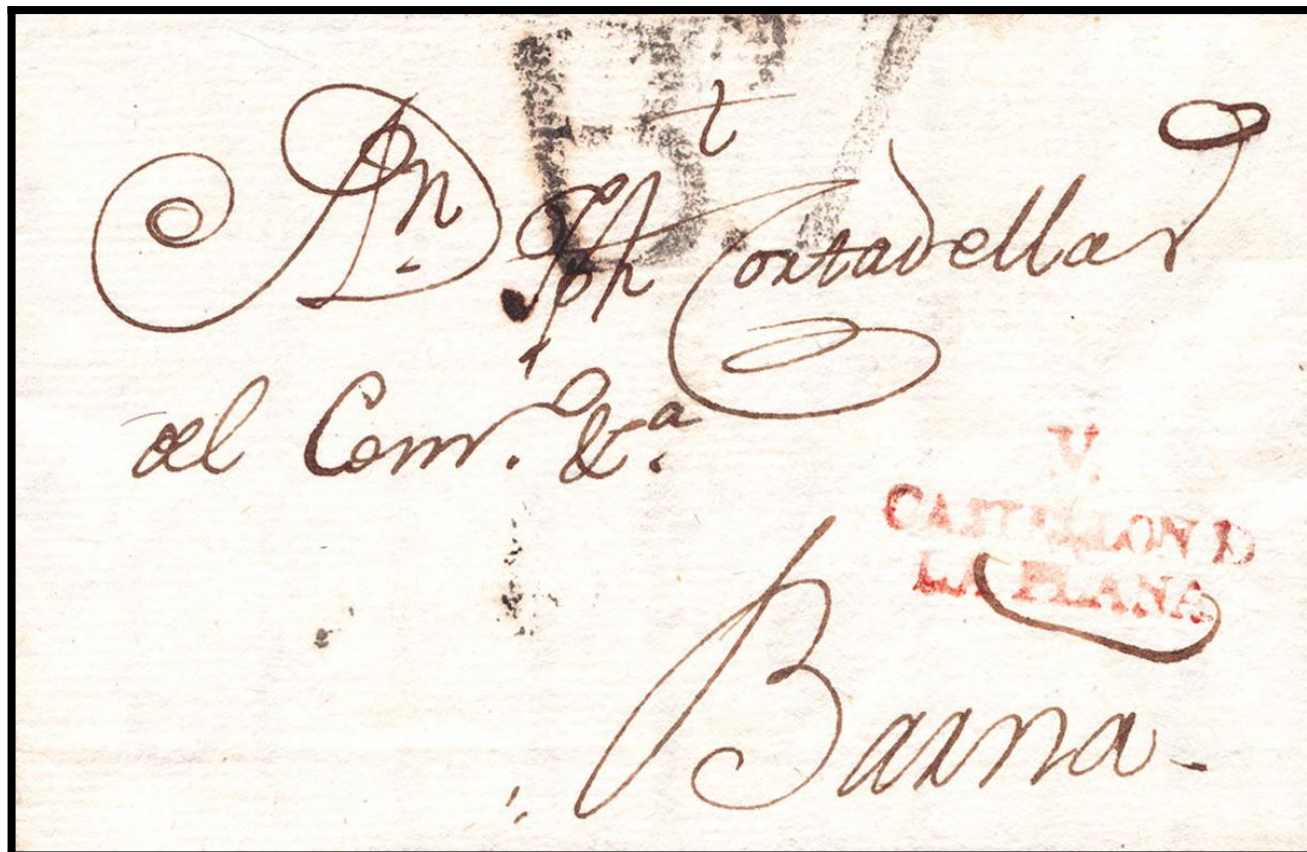 A Dn. Jph Cortadellas
del Comr.º &.ª
V.
CASTELLON D
LA PLANA
Barna.